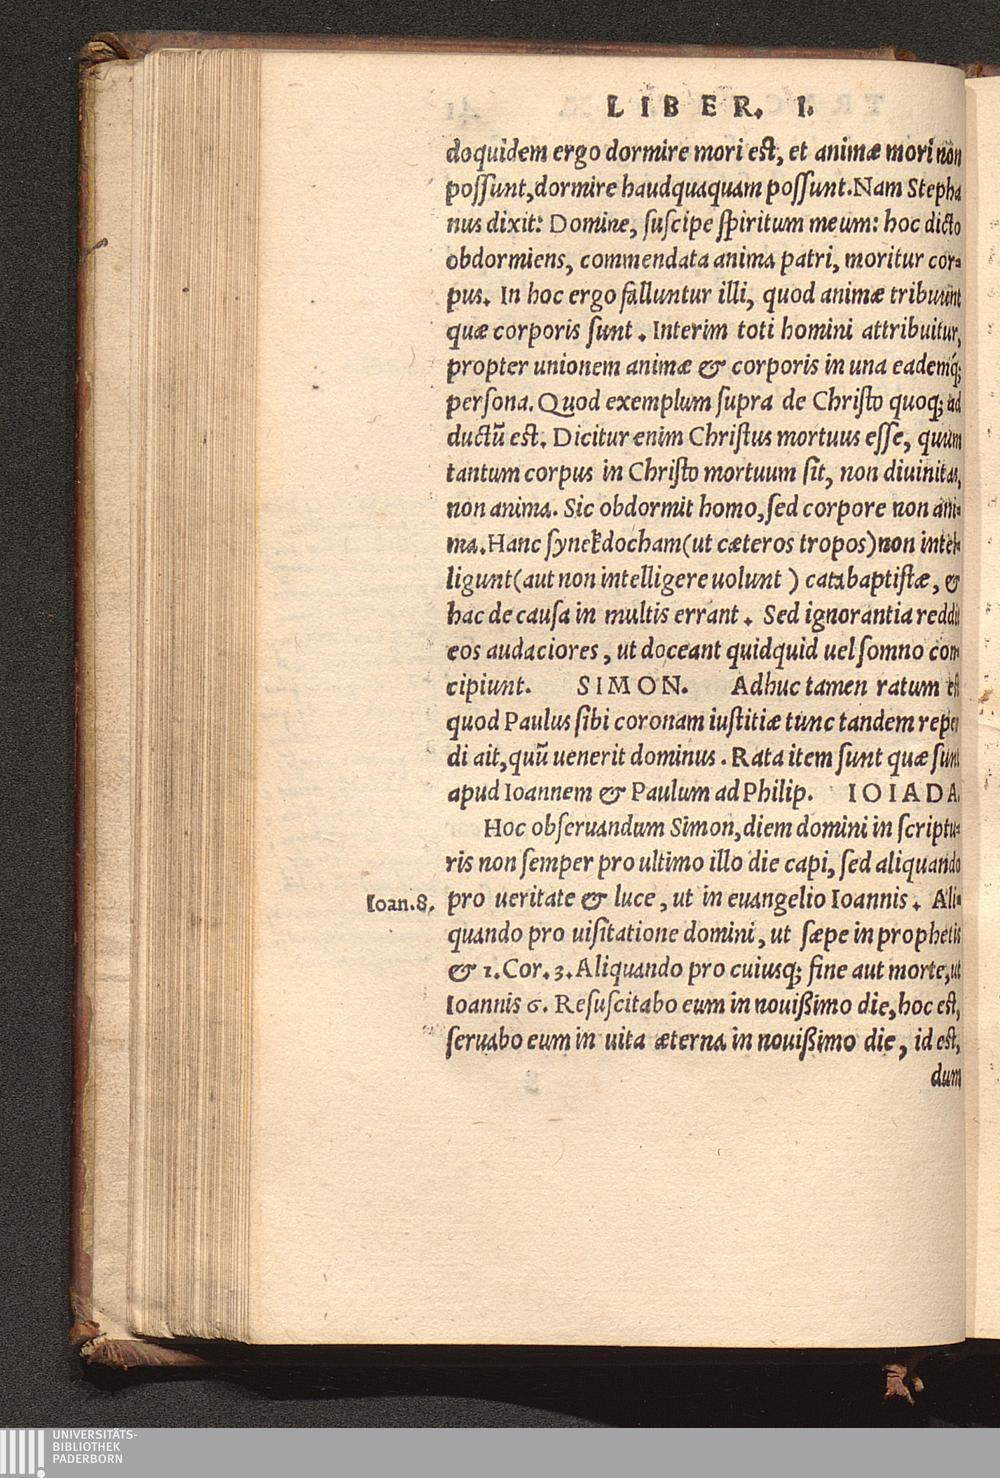 LIBER. I.
doquidem ergo dormire mori est, et animæ mori non
possunt, dormire haudquaquam possunt. Nam Stepha
nus dixit: Domine, suscipe spiritum meum: hoc dicto
obdormiens, commendata anima patri, moritur cor-
pus. In hoc ergo falluntur illi, quod animæ tribuunt
quæ corporis sunt. Interim toti homini attribuitur,
propter unionem animæ & corporis in una eademq́;
persona. Quod exemplum supra de Christo quoq; ad
ductū est. Dicitur enim Christus mortuus esse, quum
tantum corpus in Christo mortuum sit, non diuinitas,
non anima. Sic obdormit homo, sed corpore non ani-
ma. Hanc synekdocham (ut cæteros tropos) non intel-
ligunt (aut non intelligere uolunt) catabaptistæ, &
hac de causa in multis errant. Sed ignorantia reddit
eos audaciores, ut doceant quidquid uel somno con-
cipiunt. SIMON. Adhuc tamen ratum est
quod Paulus sibi coronam iustitiæ tunc tandem repen
di ait, quū uenerit dominus. Rata item sunt quæ sunt
apud Ioannem & Paulum ad Philip. IOIADA.
Hoc obseruandum Simon, diem domini in scriptu-
ris non semper pro ultimo illo die capi, sed aliquando
Ioan.8. pro ueritate & luce, ut in euangelio Ioannis. Ali-
quando pro uisitatione domini, ut sæpe in prophetis
& 1. Cor. 3. Aliquando pro cuiusq; fine aut morte, ut
Ioannis 6. Resuscitabo eum in nouißimo die, hoc est,
seruabo eum in uita æterna in nouißimo die, id est,
dum
UNIVERSITÄTS-
BIBLIOTHEK
PADERBORN